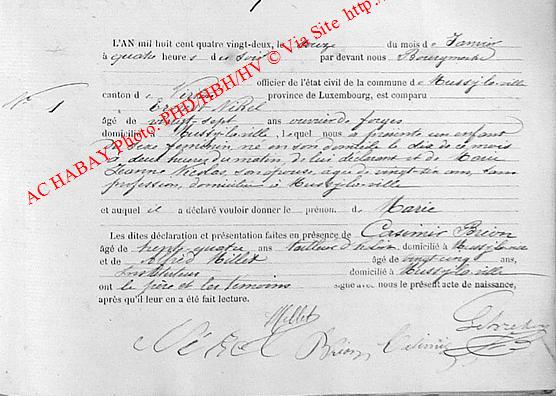 L'AN mil huit cent quatre vingt-deux, le douze du mois de Janvier
à quatre heures du soir par devant nous Bourgmestre
officier de l'état civil de la commune de Mussy-la-ville
canton de Virton province de Luxembourg, est comparu
Ernest Nérel
N° 1
âgé de vingt-sept ans ouvrier de forges
domicilié Mussy-la-ville, lequel nous a présenté un enfant
du sexe féminin né en son domicile le dix de ce mois
à deux heures du matin, de lui déclarant et de Marie
Jeanne Nicolas, son épouse, agée de vingt-six ans, sans
profession, domiciliée à Mussy-la-ville
et auquel il a déclaré vouloir donner le prénom de Marie
Les dites déclaration et présentation faites en présence de Casimir Brion
âgé de trente-quatre ans tailleur d'habits, domicilié à Mussy-la-ville
et de Alfred Millet âgé de vingt cinq ans,
instituteur domicilié à Mussy-la-ville
ont le père et les témoins signé avec nous le présent acte de naissance,
après qu'il leur en a été fait lecture.
Millet
Brion Casimir
AC HABAY Photo: PHD/HBH/HV © Via Site http